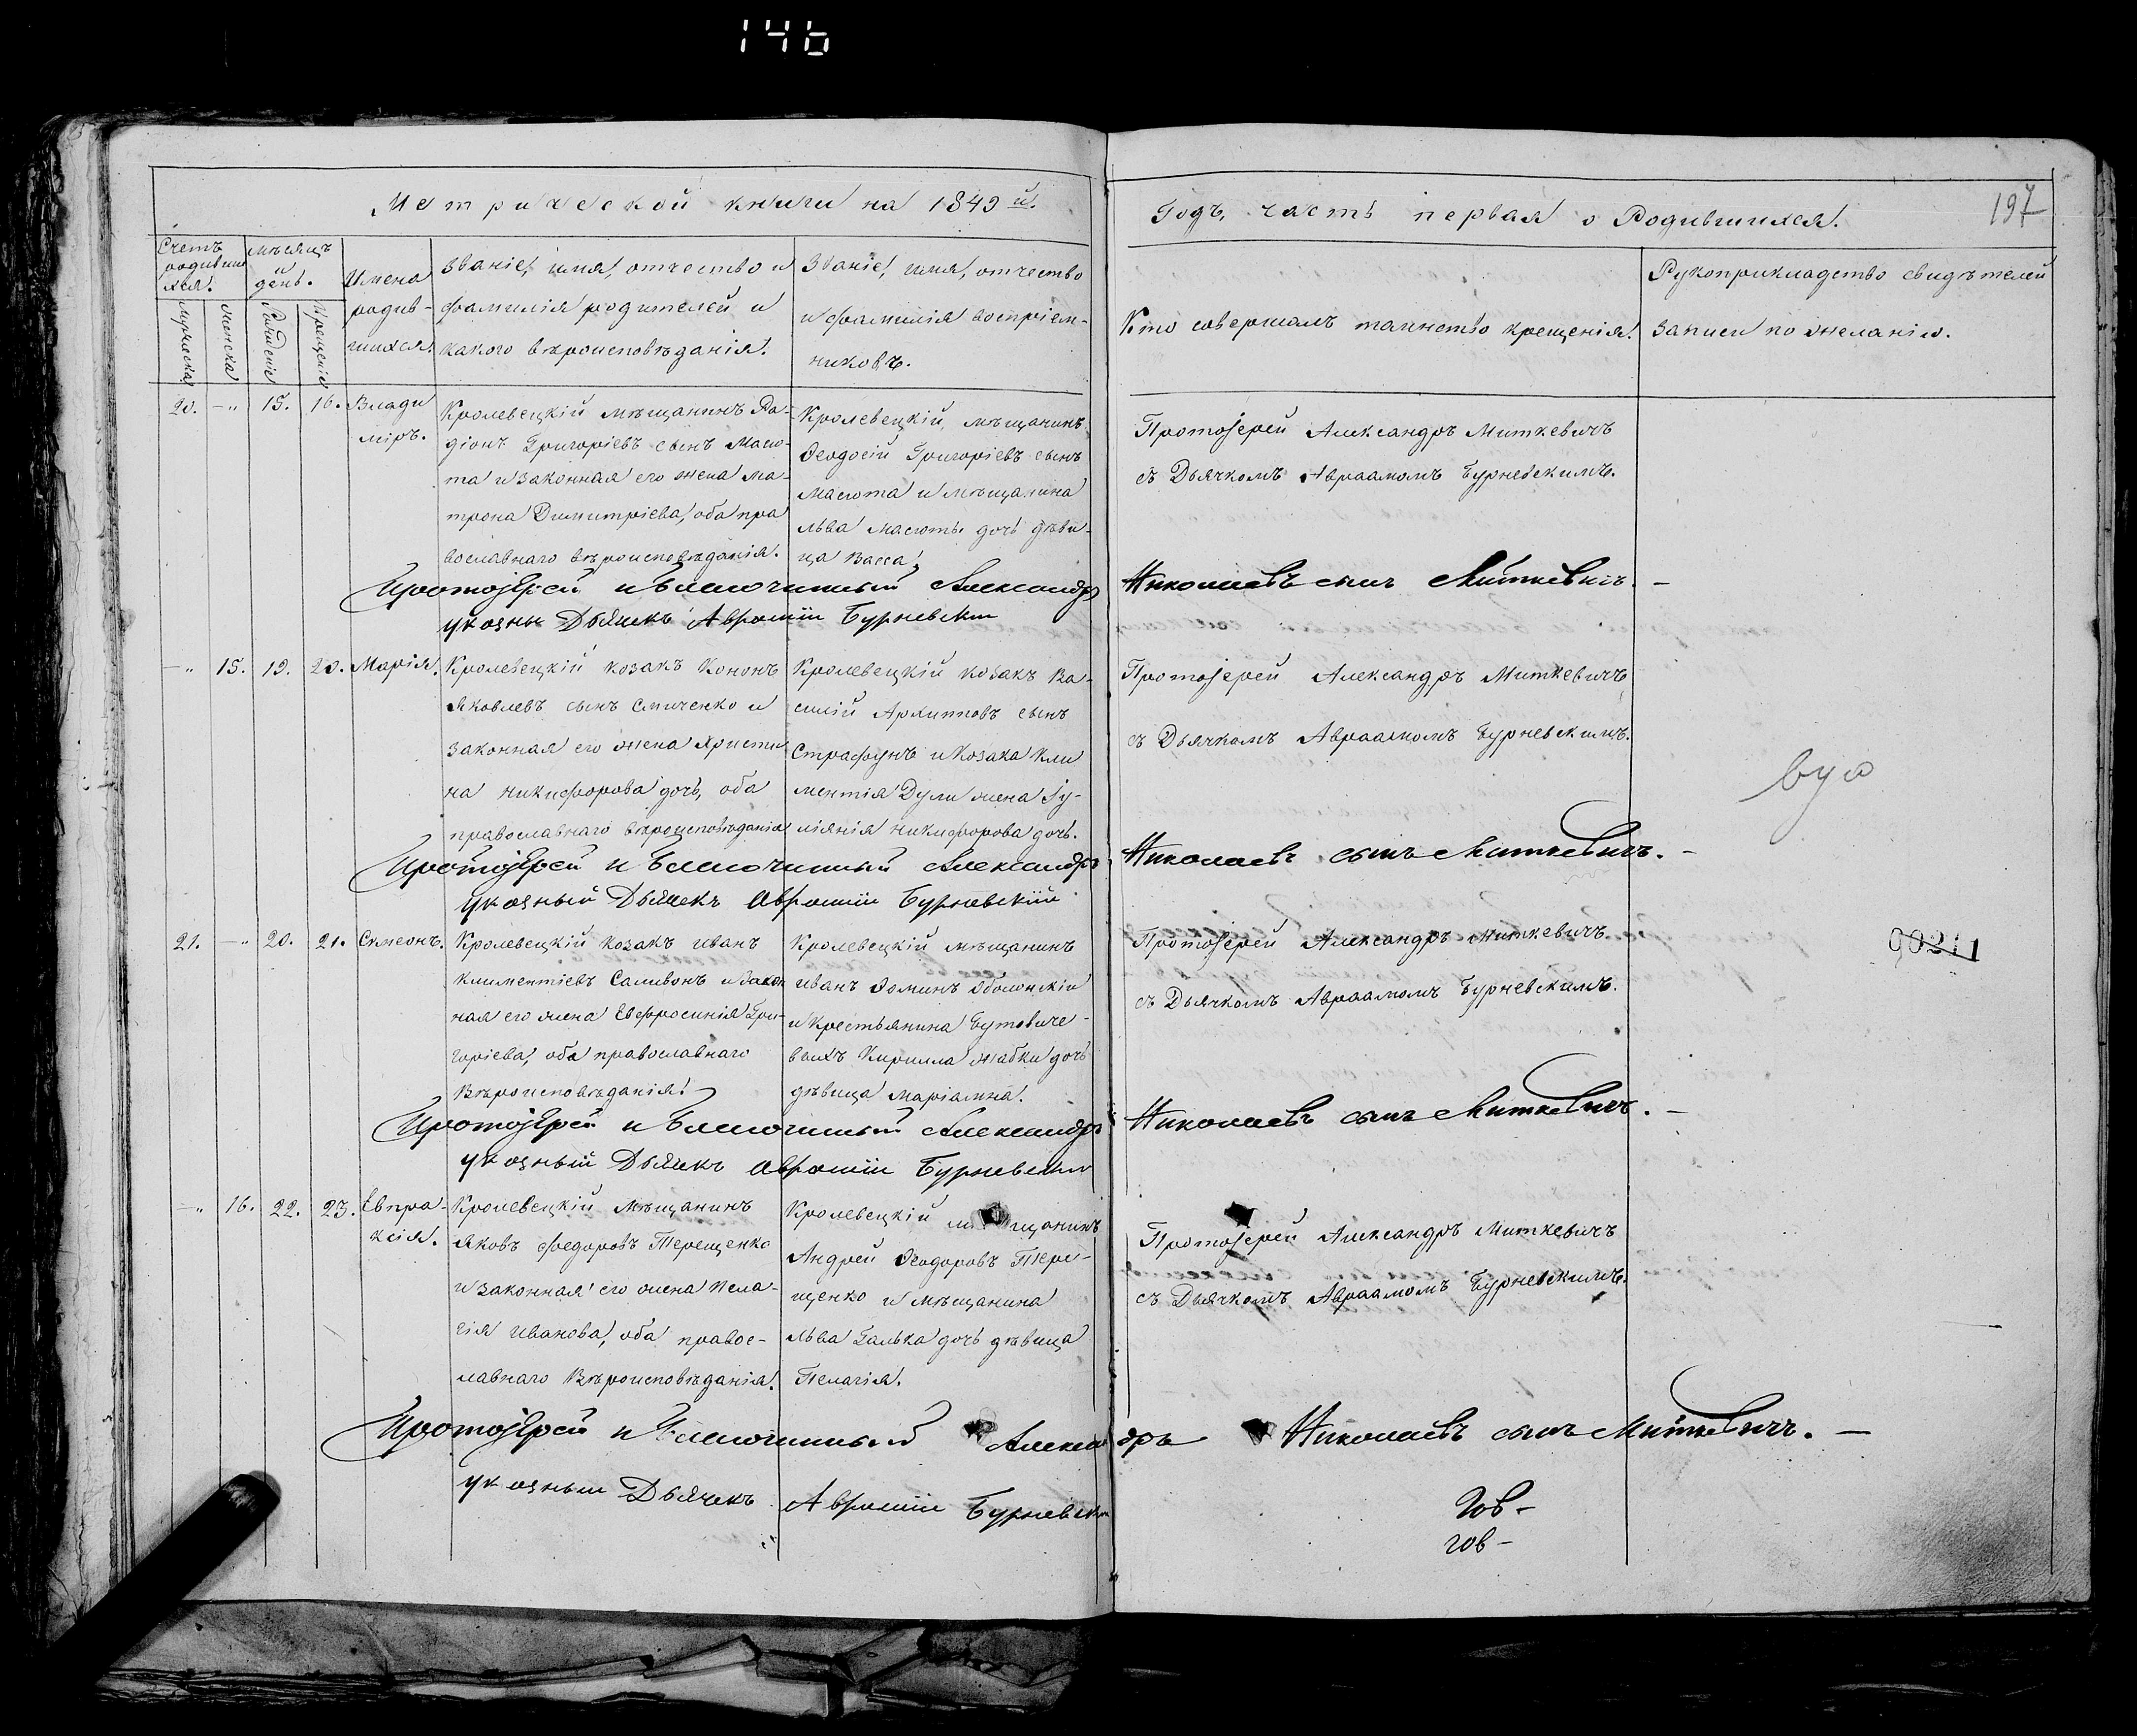 146
Метрической книги на 1849й.
Годъ, часть первая о Родившихся.
197
Счетъ родившихся.
Мѣсяцъ и день.
Имена родив-
шихся.
Званіе, имя, отчество и
фамилія родителей и
какого вѣроисповѣданія.
Званіе, имя, отчество
и фамилія воспріем-
никовъ.
Кто совершалъ таинство крещенія.
Рукоприкладство свидѣтелей
записи по желанію.
Мужеска
Женска
Рожденіе
Крещеніе
20. -„ 15. 16. Влади
міръ.
Кролевецкій мѣщанинъ Ро-
діонъ Григоріевъ сынъ Масю-
та и законная его жена Ма-
трона Димитріева, оба пра
вославнаго вѣроисповѣданія.
Кролевецкій мѣщанинъ
Ѳеодосій Григоріевъ сынъ
Масюта и мѣщанина
Льва Масюты дочь дѣви-
ца Васса.
Протоіерей Александръ Миткевичъ
съ Дьячкомъ Авраамомъ Бурневскимъ.
Протоіерей и Благочинный Александръ Николаевъ сынъ Миткевичъ. -
указный Дьячекъ Аврамій Бурневскій
-„ 15. 19. 20. Марія.
Кролевецкій козакъ Кононъ
Яковлевъ сынъ Смиченко и
законная его жена Христи
на Никифорова дочь, оба
православнаго вѣроисповѣданія
Кролевецкій козакъ Ва-
силій Архиповъ сынъ
Страфунъ и козака Кли
ментія Дули жена Іу-
ліянія Никифорова дочь.
Протоіерей Александръ Миткевичъ
съ Дьячкомъ Авраамомъ Бурневскимъ.
Протоіерей и Благочинный Александръ Николаевъ сынъ Миткевичъ. -
указный Дьячекъ Аврамій Бурневскій
21. -„ 20. 21. Симеонъ.
Кролевецкій козакъ Иванъ
Климентіевъ Саливонъ и закон
ная его жена Евфросинія Гри-
горіева, оба православнаго
вѣроисповѣданія.
Кролевецкій мѣщанинъ
Иванъ Ѳоминъ Оболонскій
и крестьянина Бутовиче-
выхъ Кирилла Жабки дочь
дѣвица Маріамна.
Протоіерей Александръ Миткевичъ
съ Дьячкомъ Авраамомъ Бурневскимъ.
00211
Протоіерей и Благочинный Александръ Николаевъ сынъ Миткевичъ. -
указный Дьячекъ Аврамій Бурневскій
-„ 16. 22. 23. Евпра-
ксія.
Кролевецкій мѣщанинъ
Яковъ Федоровъ Терещенко
и законная его жена Пела-
гія Иванова, оба правос-
лавнаго вѣроисповѣданія.
Кролевецкій мѣщанинъ
Андрей Ѳеодоровъ Тере-
щенко и мѣщанина
Льва Галька дочь дѣвица
Пелагія.
Протоіерей Александръ Миткевичъ
съ Дьячкомъ Авраамомъ Бурневскимъ.
Протоіерей и Благочинный Александръ Николаевъ сынъ Миткевичъ. -
указный Дьячекъ Аврамій Бурневскій